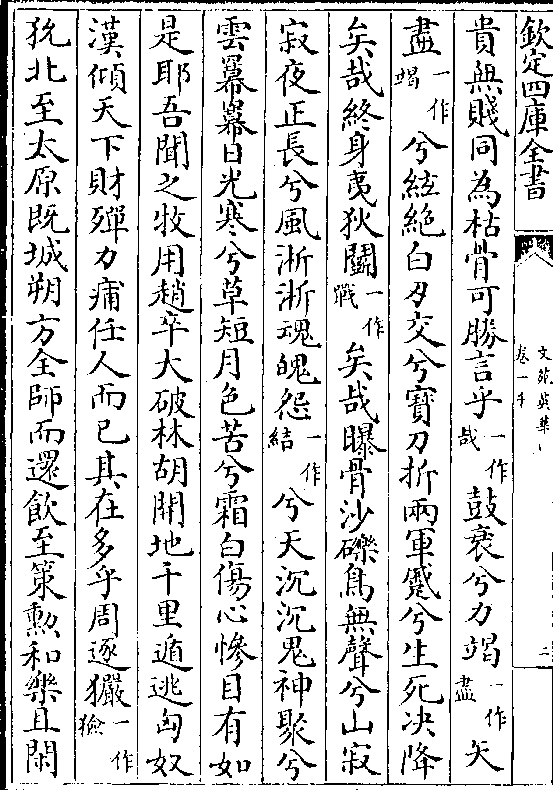 欽定四庫全書
文苑英華
卷一千
二
貴無賤同為枯骨可勝言乎一作哉鼓衰兮力竭一作盡矢
盡一作竭兮絃絶白刃交兮寳刀折兩軍蹙兮生死決降
矣哉終身夷狄鬬一作戰矣哉曝骨沙礫鳥無聲兮山寂
寂夜正長兮風淅淅魂魄怨一作結兮天沉沉鬼神聚兮
雲冪冪日光寒兮草短月色苦兮霜白傷心慘目有如
是耶吾聞之牧用趙卒大破林胡開地千里遁逃匈奴
漢傾天下財殫力痡任人而已其在多乎周逐玁一作獫
狁北至太原既城朔方全師而還飲至策勲和樂且閑